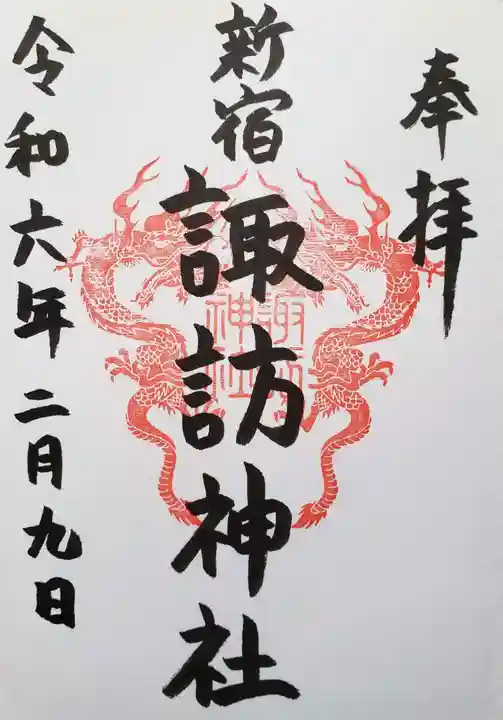 奉拝
新宿
諏訪神社
令和六年二月九日
諏訪
神社